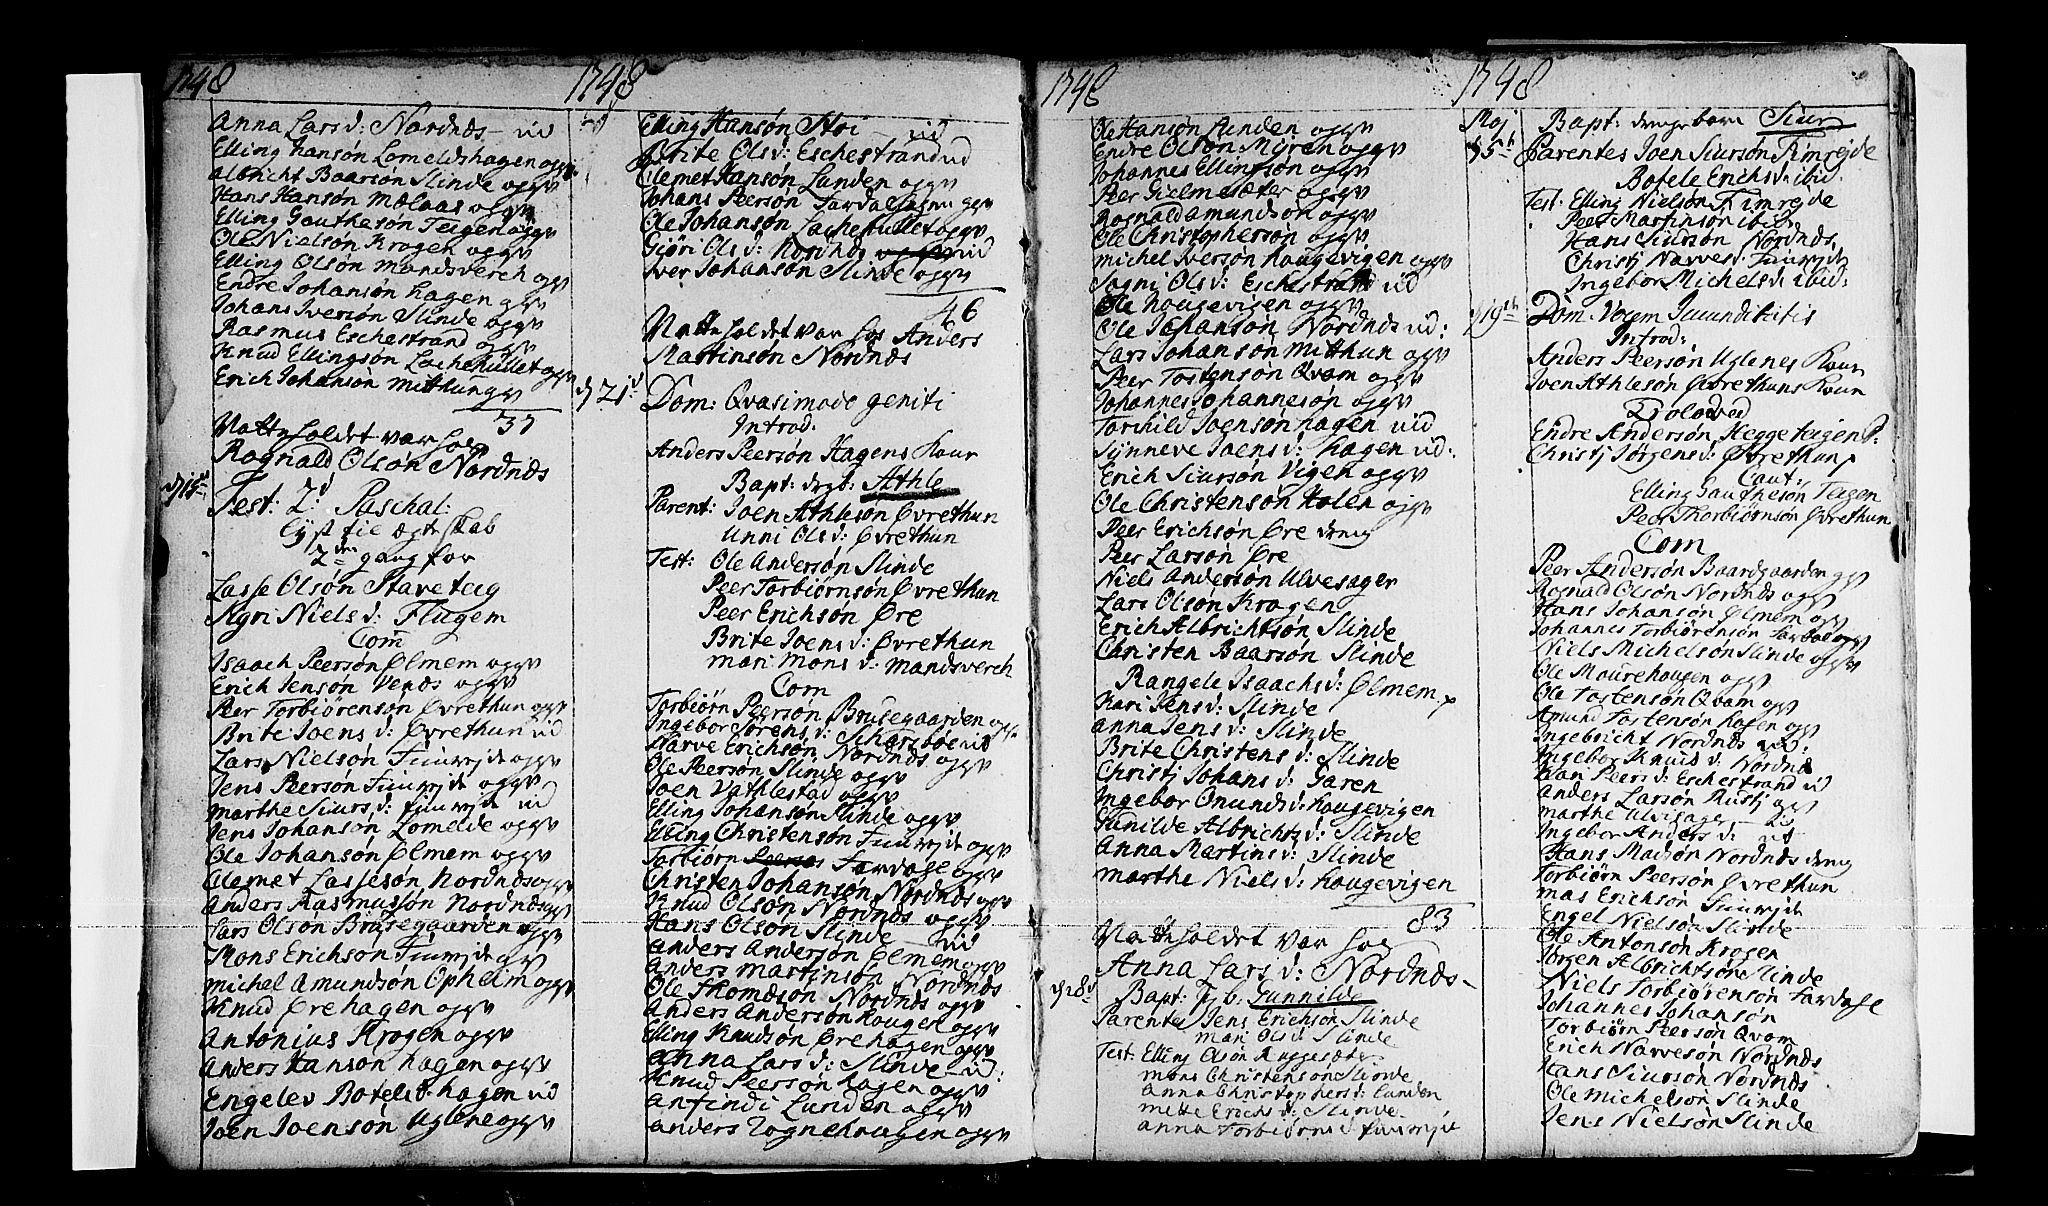 1748
Anna Lars d: Nordnæs — ud
Elling Hansøn Lomeldshagen og gv
Albricht Baarsøn Slinde og gv
Hans Hansøn Mælaas og gv
Elling Gauthesøn Teigen og gv
Ole Nielsøn Krogen og gv
Elling Olsøn Mandsverch og gv
Endre Johansøn Hagen og gv
Johans Iversøn Slinde og gv
Rasmus Eschestrand og gv
Knud Ellingsøn Lachehullet og gv
Erich Johansøn Mitthun og gv
37
Natteholdet var hos
Rognald Olsøn Nordnæs
d 15
Fest: 2 Paschal:
Lyst til ægteskab
2den gang for
Lasse Olsøn Staveteig
Kari Niels d: Flugem
Com
Isaach Peersøn Ølmem og gv
Erich Jensøn Venæs og gv
Peer Torbiørensøn Øvrethun og gv
Brite Joens d: Øvrethun ud
Lars Nielsøn Fimrejde og gv
Jens Peersøn Fimrejde og gv
Marthe Siurs d: Fimrejde ud
Jens Johansøn Lomelde og gv
Ole Johansøn Ølmem og gv
Clemet Lassesøn Nordnæs og gv
Anders Rasmusson Nordnæs og gv
Lars Olsøn Brusegaarden og gv
Mons Erichsøn Fimrejde og gv
Michel Amundsøn Opheim og gv
Knud Ørehagen og gv
Antonius Krogen og gv
Anders Hanson Hagen og gv
Engelev Botels d: Hagen ud
Joen Joensøn Uglene og gv
1748
Elling Hansøn Stoi — ud
Brite Ols d: Eschestrand ud
Clemet Hansøn Lunden og gv
Johans Peersøn Fardal og gv
Ole Johansøn Lachehullet og gv
Giøri Ols d: Nordnæs ud
Iver Johansøn Slinde og gv
46
Natteholdet var hos Anders
Martinsøn Nordnæs
d 21
Dom: Qvasimodo geniti
Introd:
Anders Peersøn Hagens Konn
Bapt: drgb: Athle
Parent: Joen Athlesøn Øvrethun
Unni Ols d: Øvrethun
Test: Ole Andersøn Slinde
Peer Torbiørnsøn Øvrethun
Peer Erichsøn Øre
Brite Joens d: Øvrethun
Mari Mons d: Mandsverch
Com
Torbiørn Peersøn Brusegaarden og gv
Ingebor Sørens d: Scharsbøe ud
Narve Erichsøn Nordnæs og gv
Ole Peersøn Slinde og gv
Joen Vathlestad og gv
Elling Johansøn Slinde og gv
Elling Christensøn Fimrejde og gv
Torbiørn Fardale og gv
Christen Johansøn Nordnæs og gv
Knud Olsøn Nordnæs og gv
Hans Olsøn Slinde — ud
Anders Andersøn Ølmem og gv
Anders Martinsøn Nordnæs
Ole Thomæsøn Nordnæs og gv
Anders Andersøn Hougen og gv
Elling Knudsøn Ørehagen og gv
Anna Lars d: Slinde ud:
Knud Peersøn Hagen og gv
Anfind i Lunden og gv
Anders Tognehougen og gv
1748
Ole Hansøn Linden og gv
Endre Olsøn Myren og gv
Johannes Ellingsøn og gv
Peer Gielmesæter og gv
Rognald Amundsøn og gv
Ole Christophersøn og gv
Michel Iversøn Hougevigen og gv
Sogni Ols d: Eschestrand ud
Ole Hougevigen og gv
Ole Johansøn Nordnæs ud:
Lars Johansøn Mitthun og gv
Peer Tostensøn Qvam og gv
Johannes Johannesøn og gv
Torchild Joensøn Hagen ud
Synneve Joens d: Hagen ud:
Erich Siursøn Vigen og gv
Ole Christensøn Holen og gv
Peer Erichsøn Øre dreng
Peer Larsøn Øre
Niels Andersøn Ulvesager
Lars Olsøn Krogen
Erich Albrichtsøn Slinde
Christen Baarsøn Slinde
Rangele Isaachs d: Ølmem. p
Kari Jens d: Slinde
Anna Jens d: Slinde
Brite Christens d: Slinde
Christj Johans d: Garen
Ingebor Onunds d: Hougevigen
Gunilde Albrichts d: Slinde
Anna Martins d: Slinde
Marthe Niels d: Hougevigen
83
Natteholdet var hos
Anna Lars d: Nordnæs
d 28
Bapt: Pjb: Gunnilde
Parentes Jens Erichsøn Slinde
Mari Ols d Slinde
Test: Elling Olsøn Ruggesæter
Mons Christensøn Slinde
Anna Christophers d: Lunden
Mette Erichs d: Slinde
Anna Torbiørns d Fimrejd
1748
Maj
d 5
Bapt: drengebarn Siur
Parentes Joen Siursøn Fimrejde
Botele Erichs d: ibid.
Test: Elling Nielsøn Fimrejde
Peer Martinsøn ibid
Hans Siursøn Nordnæs
Christj Narves d. Fimrejde
Ingebor Michels d: ibid:
d 19
Dom. Vocem Jucunditatis
Introd:
Anders Peersøn Uglenes Konn
Joen Athlesøn Øvrethuns Konn
Troloved
Endre Andersøn Heggeteigen P:
Christj Jørgens d: Øvrethun p
Caut:
Elling Gauthesøn Teigen
Peer Thorbiørnsøn Øvrethun
Com
Peer Andersøn Baardgaarden og gv
Rognald Olsøn Nordnæs og gv
Hans Johansøn Ølmem og gv
Johannes Torbiørensøn Fardal og gv
Niels Michelsøn Slinde og gv
Ole Mourehougen og gv
Ole Tostensøn Qvam og gv
Amund Tostensøn Hagen og gv
Ingebricht Nordnæs ud:
Ingebor Knuds d: Nordnæs
Kari Peers d: Eschestrand ud
Anders Larsøn Rustj og gv
Marthe Ulvisager — ud
Ingebor Anders d: ud
Hans Madsøn Nordnæs dreng
Torbiørn Peersøn Øvrethun
Mas Erichsøn Fimrejde
Engel Nielsøn Slinde
Ole Antonsøn Krogen
Jørgen Albrichtsøn Slinde
Niels Torbiørensøn Fardale
Johannes Johansøn
Torbiørn Peersøn Qvam
Erich Narvesøn Nordnæs
Hans Siursøn Nordnæs
Ole Michelsøn Slinde
Jens Nielsøn Slinde